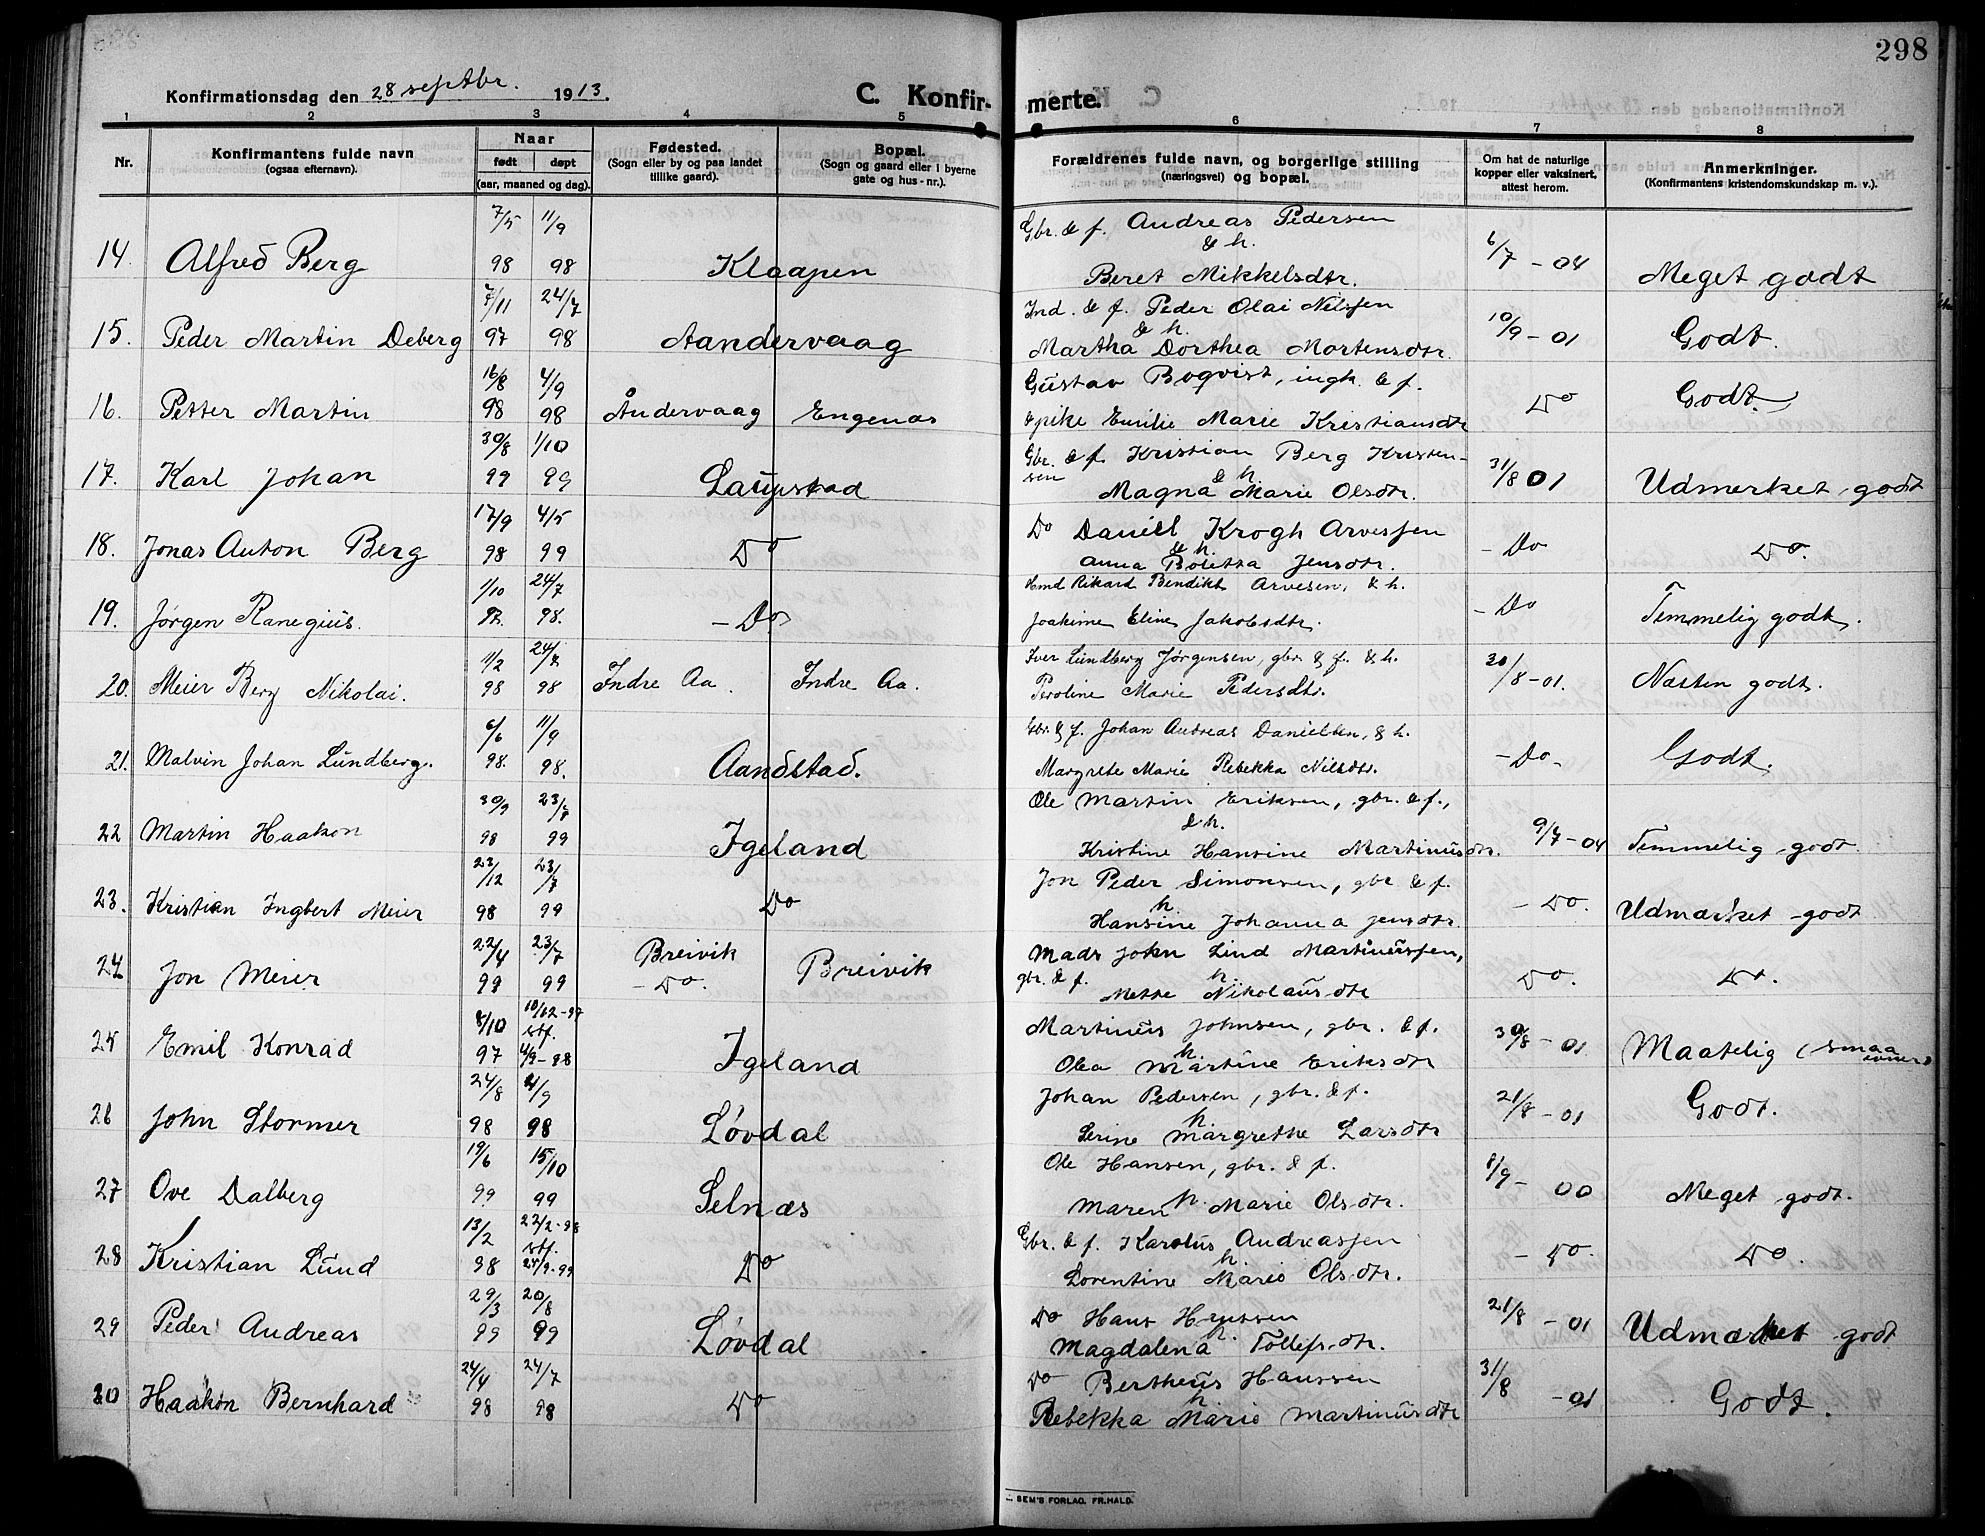 298
Konfirmationsdag den 28 septbr. 1913.
C. Konfirmerte.
1 2 3 4 5 6 7 8
Nr.
Konfirmantens fulde navn
(ogsaa efternavn).
Naar
født døpt
(aar, maaned og dag).
Fødested.
(Sogn eller by og paa landet
tillike gaard).
Bopæl.
(Sogn og gaard eller i byerne
gate og hus-nr.).
Forældrenes fulde navn, og borgerlige stilling
(næringsvei) og bopæl.
Om hat de naturlige
kopper eller vaksinert,
attest herom.
Anmerkninger.
(Konfirmantens kristendomskundskap m. v.).
7/5 11/9 Gbr. & f. Andreas Pedersen
& h. 6/7 - 04
14. Alfred Berg 98 98 Klaapen Beret Mikkelsdtr. Meget godt
7/11 24/7 Ind. & f. Peder Olai Nilssen
& h. 10/9 - 01
15. Peder Martin Deberg 97 98 Aandervaag Martha Dorthea Mortensdtr. Godt.
16/8 4/9 Gustav Boqvist, ungk. & f.
16. Petter Martin 98 98 Åndervaag Engenæs & pike Emilie Marie Kristiansdtr Do Godt.
30/8 1/10 Gbr. & f. Kristian Berg Kristen-
sen & h. 31/8 01
17. Karl Johan 99 99 Laupstad Magna Marie Olsdtr. Udmerket godt
17/9 4/5 Do Daniel Krogh Arvessen
& h.
18. Jonas Anton Berg 98 99 Do Anna Boletta Jensdtr. - Do Do.
1/10 24/7 Hmd Rikard Bendikt Arvesen, & h.
19. Jørgen Ranegius. 97. 98. - Do Joakime Eline Jakobsdtr. - Do Temmelig godt.
11/2 24/7 Iver Lundberg Jørgensen, gbr. & f. & h. 30/8 - 01.
20. Meier Berg Nikolai. 98 98 Indre Aa. Indre Aa. Peroline Marie Pedersdtr. Næsten godt.
6/6 11/9 Gbr. & f. Johan Andreas Danielsen, & h.
21. Malvin Johan Lundberg. 98. 98. Aandstad. Margrete Marie Rebekka Nilsdtr. - Do - Godt.
30/9 23/7 Ole Martin Eriksen, gbr. & f.,
& h. 9/7 - 04
22 Martin Haakon 98 99 Igeland Kristine Hansine Martinusdtr. Temmelig godt.
23/12 23/7 Jon Peder Simonsen, gbr & f.
h.
23. Kristian Ingbert Meier 98 99 Do Hansine Johanna Jensdtr. - Do. Udmærket godt
22/4 23/7 Breivik Mads John Lind Martinussen,
gbr. & f. h.
24 Jon Meier 99 99 - Do. Breivik Mette Nikolausdtr Do. Do.
8/10 10/12 - 97 Martinus Johnsen, gbr. & f.
stf. h. 30/8 - 01
25 Emil Konrad 97 4/9 - 98 Igeland Olea Martine Eriksdtr Maatelig (smaa evner)
24/8 4/9 Johan Pedersen, gbr. & f.
h. 21/8 - 01
26 John Stormer 98 98 Løvdal Serine Margrethe Larsdtr Godt.
19/6 15/10 Ole Hansen, gbr. & f.
h. 8/9 - 00
27 Ove Dalberg 99 99 Selnæs Maren Marie Olsdtr. Meget godt.
13/2 22/2 - 98 Gbr. & f. Karolus Andreassen
stf. h.
28 Kristian Lund 98 24/9 - 99 Do Lorentine Marie Olsdtr. - Do. Do.
29/3 20/8 Do Hans Hanssen
h. 21/8 - 01
29 Peder Andreas 99 99 Løvdal Magdalena Tollefsdtr. Udmærket godt
24/4 24/7 Do Bertheus Hanssen
h. 31/8 - 01
30 Haakon Bernhard 98 98 Do Rebekka Marie Martinusdtr Godt.
SEM'S FORLAG. FR.HALD.